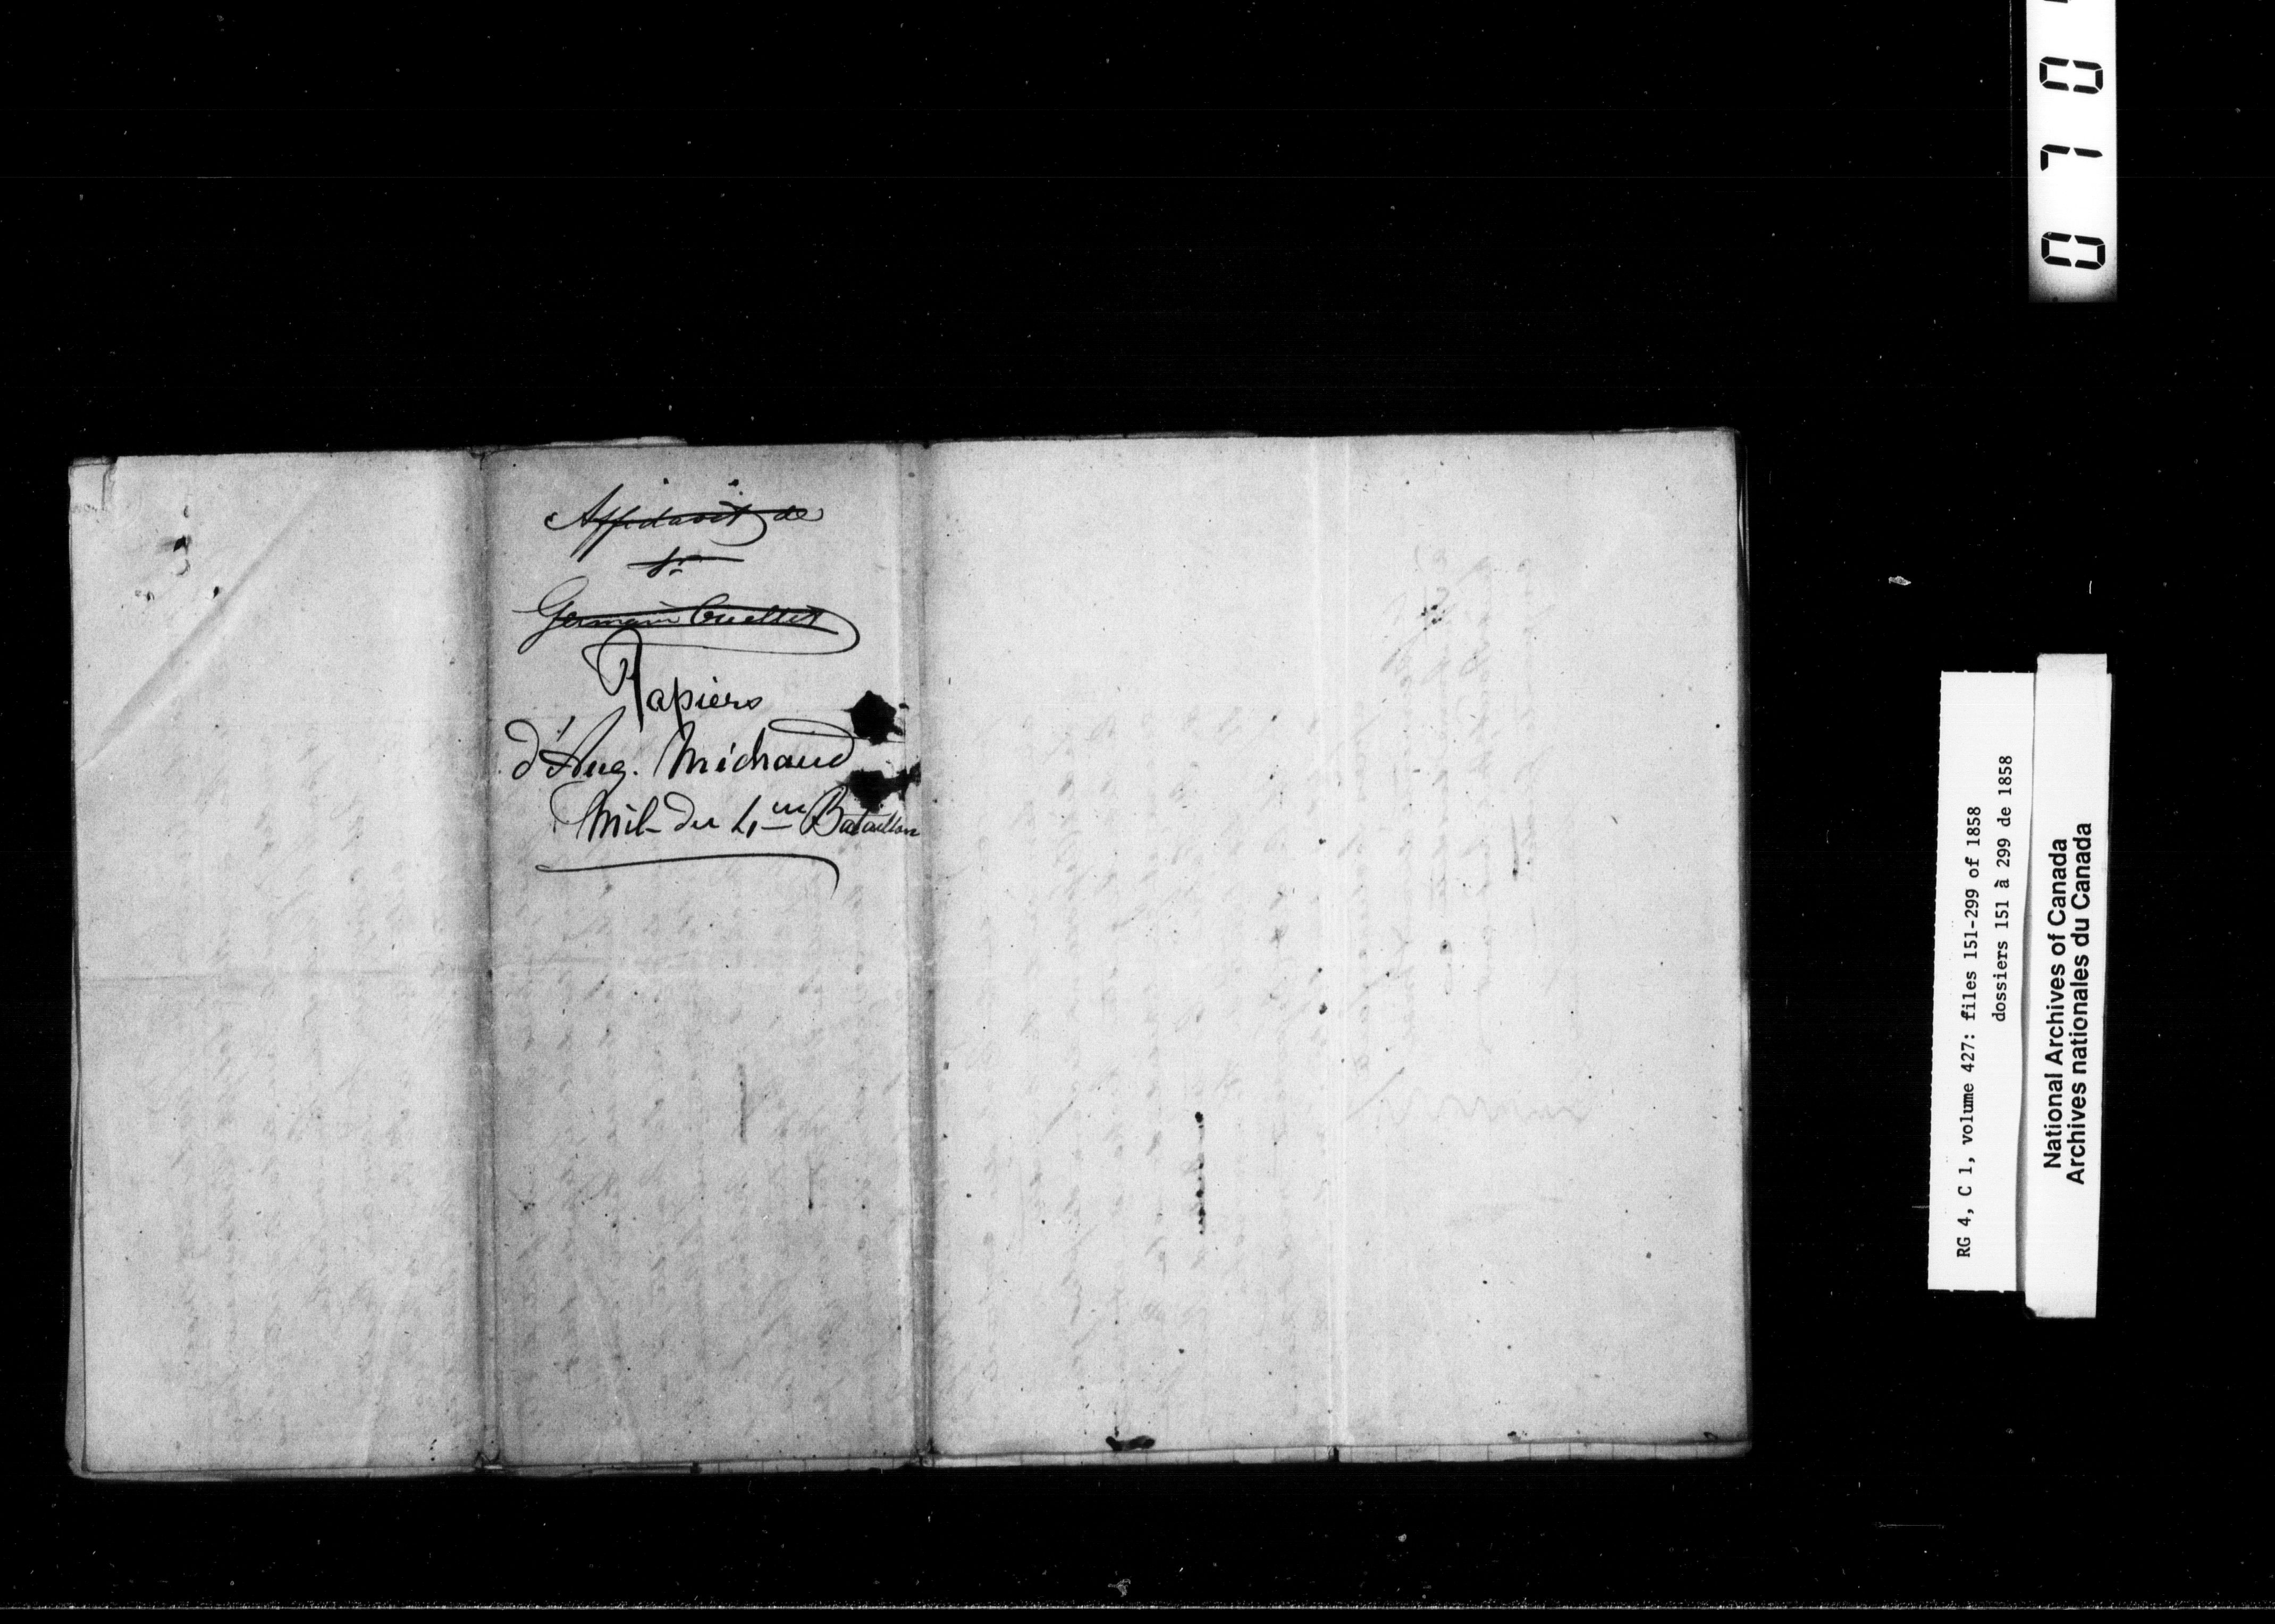 Affidavit de
Sr
Germain Ouellet
Papiers
d'Aug. Michaud
Mil. du 4me Bataillon
RG 4, C 1, volume 427: files 151-299 of 1858
dossiers 151 à 299 de 1858
National Archives of Canada
Archives nationales du Canada
0 7 0